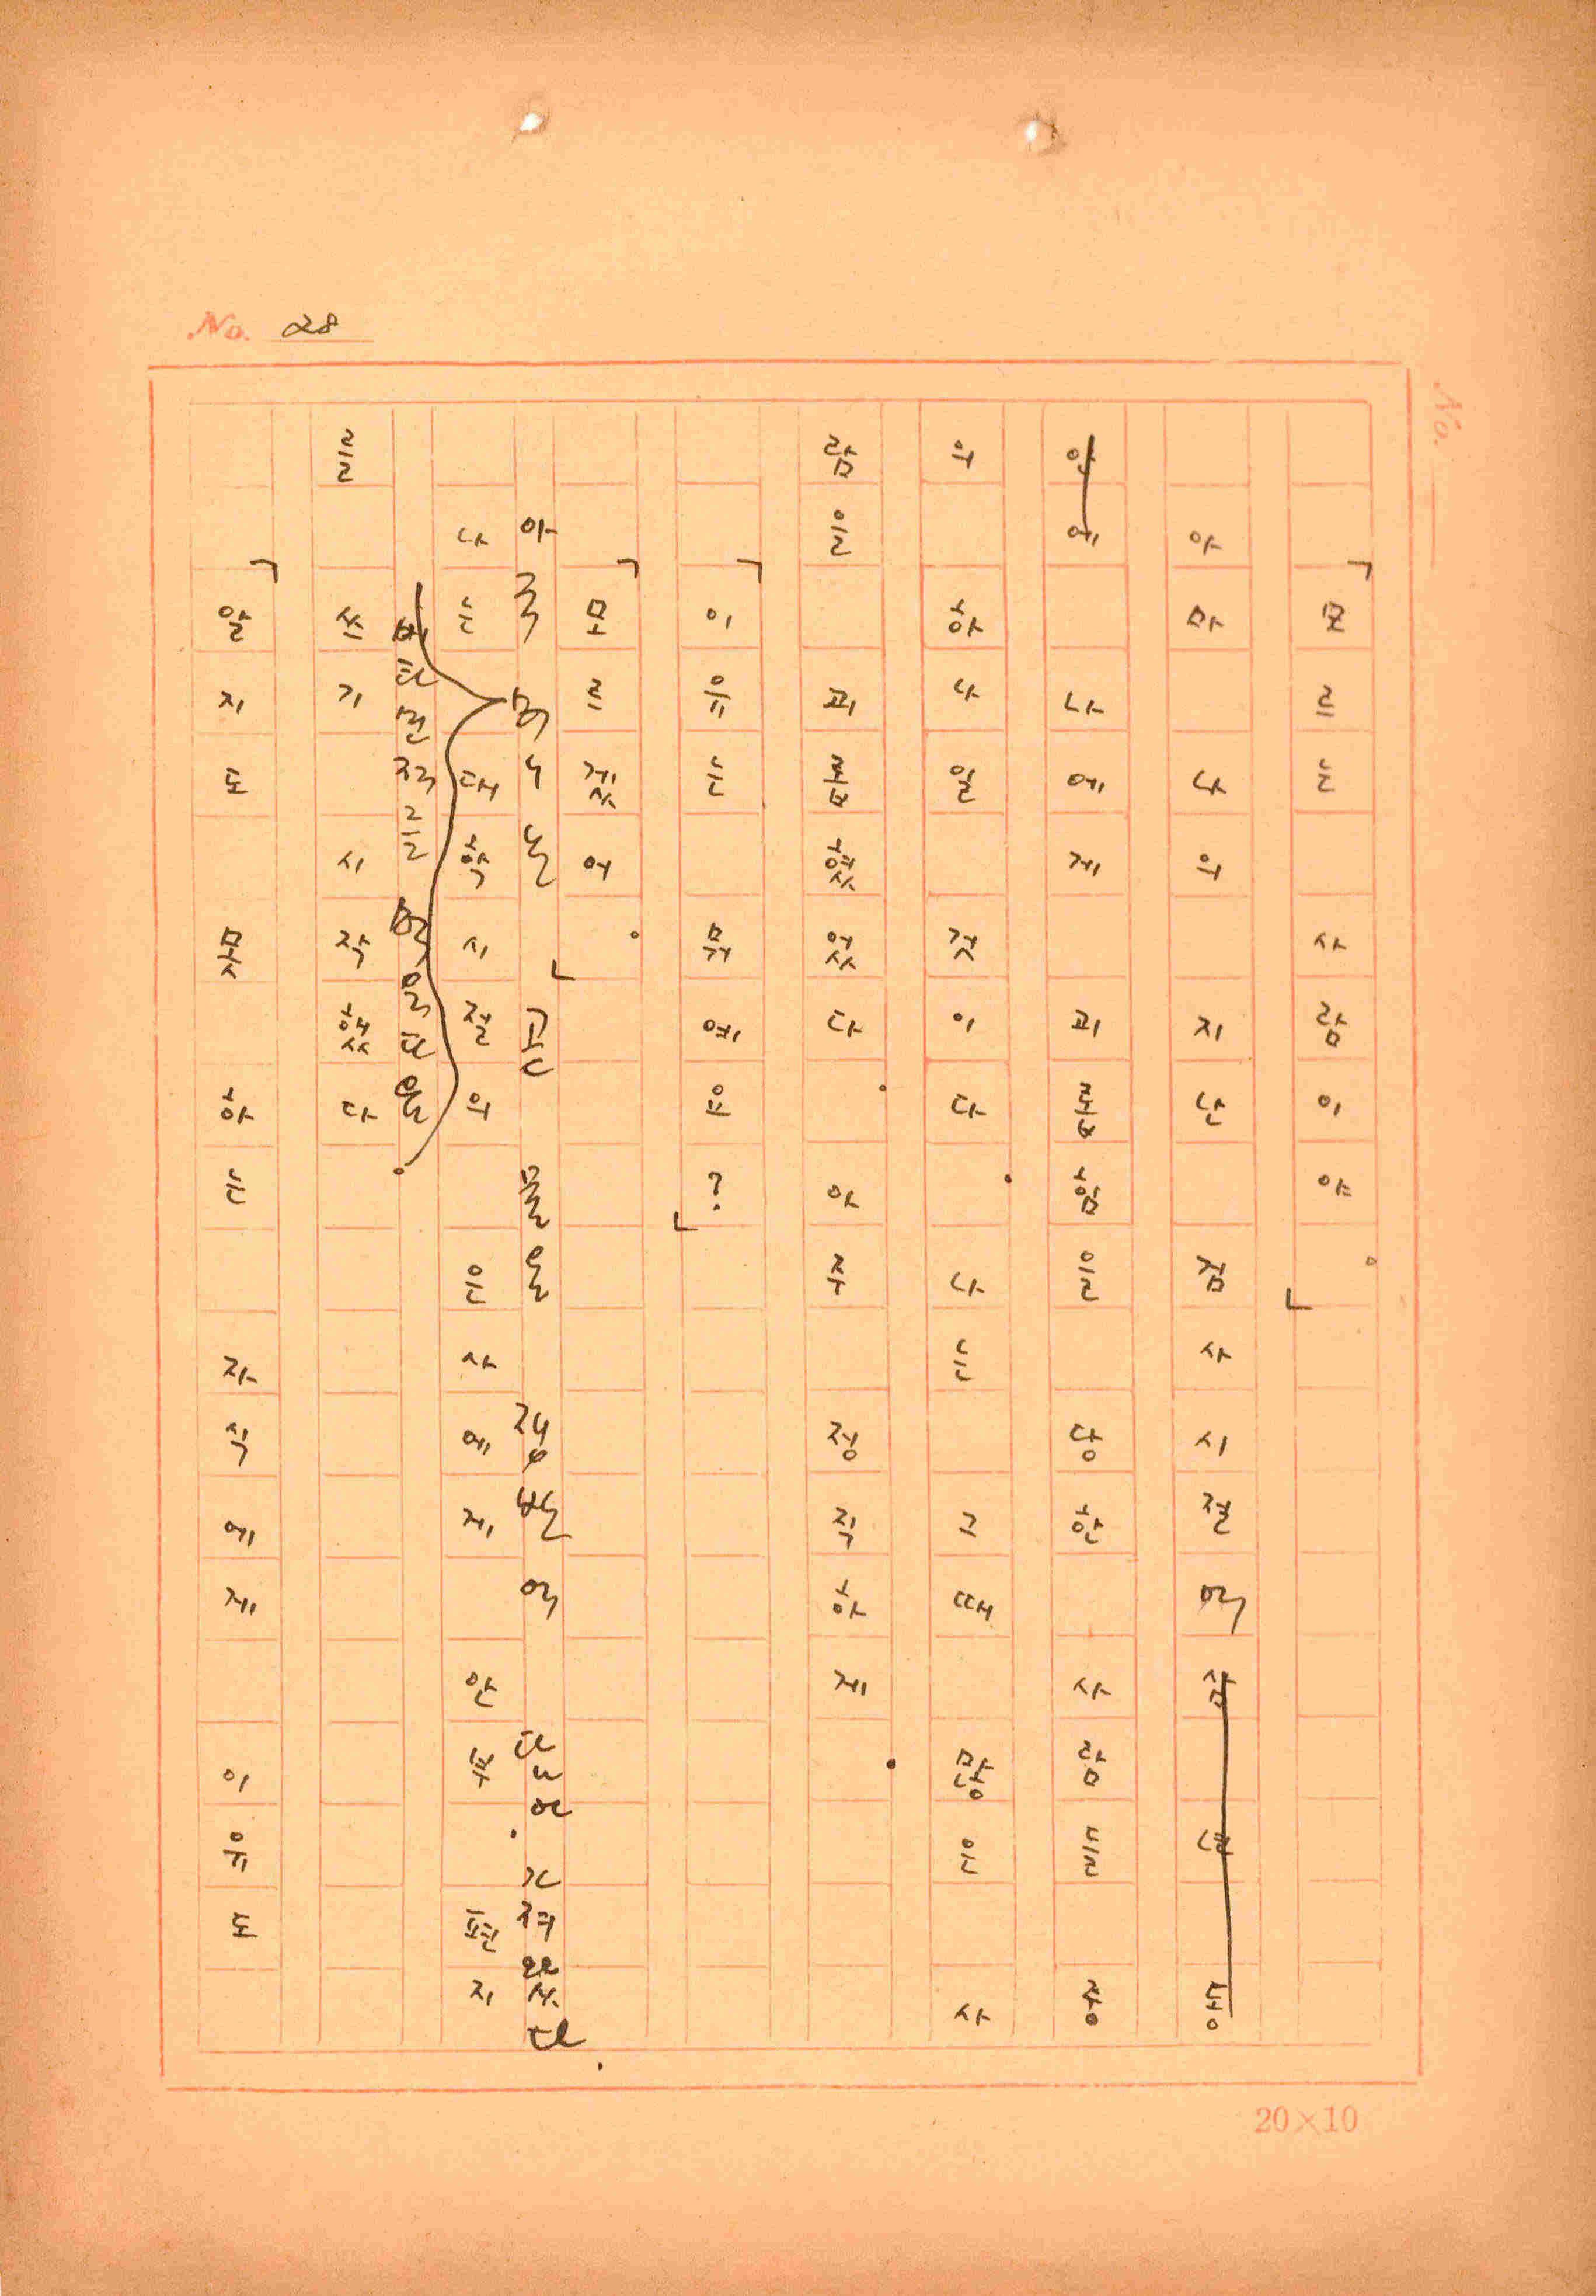 No. 28
「모르는 사람이야。」
아마 나의 지난 검사시절에 삼 년 동
안에 나에게 괴롭힘을 당한 사람들 중
의 하나일 것이다. 나는 그때 많은 사
람을 괴롭혔었다. 아주 정직하게.
「이유는 뭐예요?」
「모르겠어。」
아주머니는 물을 쟁반에 담아. 가져왔다.
나는 대학시절의 은사에게 안부 편지
를 쓰기 시작했다
「알지도 못하는 자식에게 이유도
No.
20×10